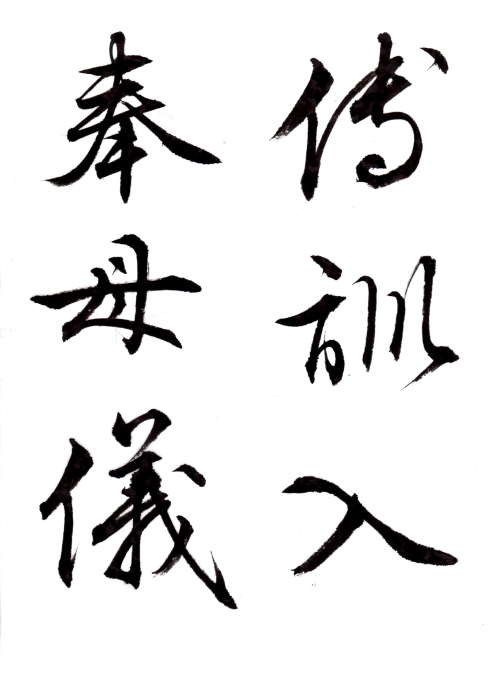 傅訓入
奉母儀